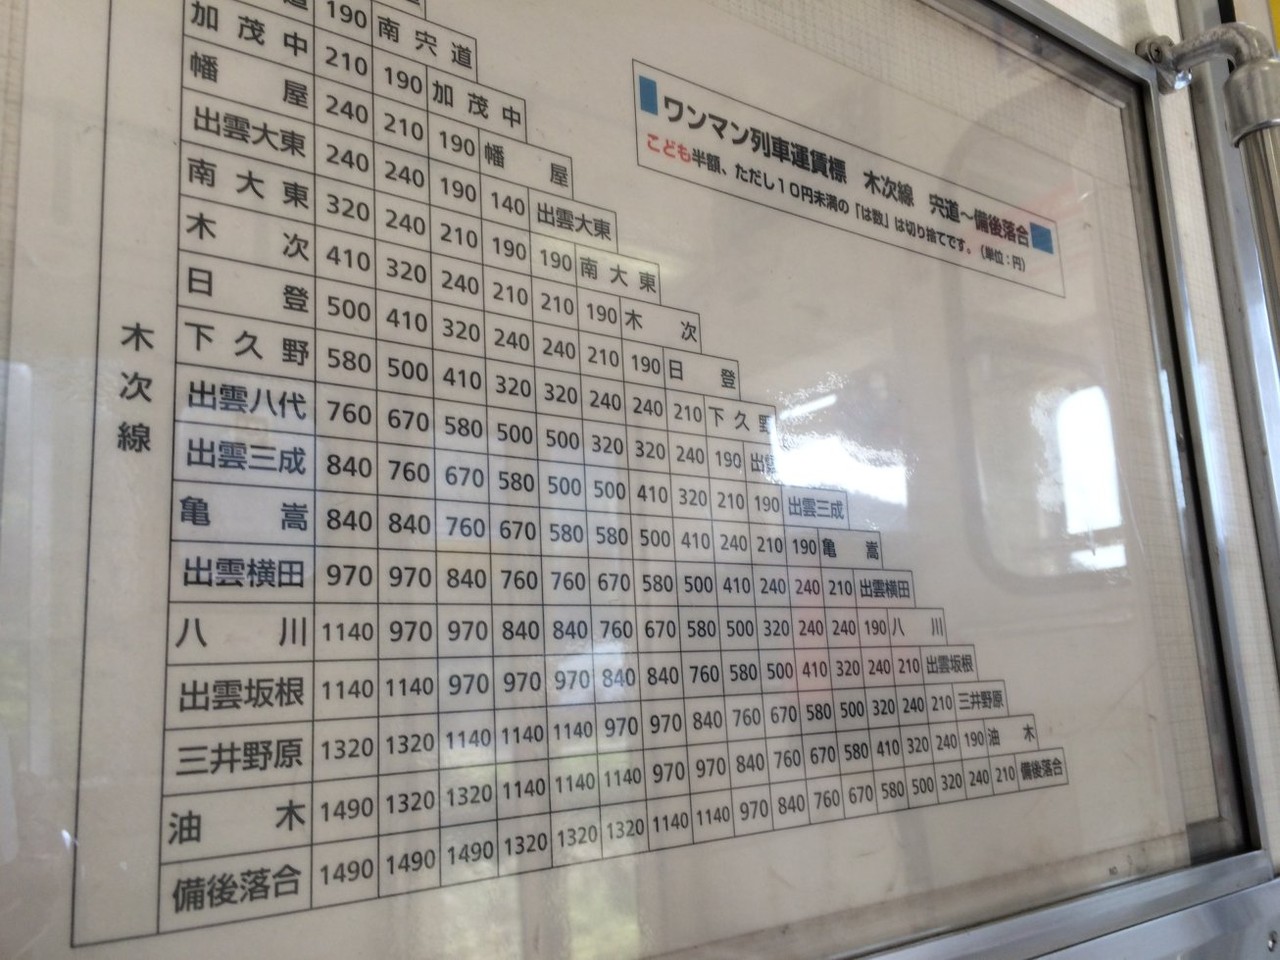 ワンマン列車運賃標 木次線 宍道～備後落合
こども半額、ただし10円未満の「は数」は切り捨てです。(単位:円)
木次線
道 190 南宍道
加茂中 210 190 加茂中
幡屋 240 210 190 幡屋
出雲大東 240 240 190 140 出雲大東
南大東 320 240 210 190 190 南大東
木次 410 320 240 210 210 190 木次
日登 500 410 320 240 240 210 190 日登
下久野 580 500 410 320 320 240 240 210 下久野
出雲八代 760 670 580 500 500 320 320 240 190 出雲
出雲三成 840 760 670 580 500 500 410 320 210 190 出雲三成
亀嵩 840 840 760 670 580 580 500 410 240 210 190 亀嵩
出雲横田 970 970 840 760 760 670 580 500 410 240 240 210 出雲横田
八川 1140 970 970 840 840 760 670 580 500 320 240 240 190 八川
出雲坂根 1140 1140 970 970 970 840 840 760 580 500 410 320 240 210 出雲坂根
三井野原 1320 1320 1140 1140 1140 970 970 840 760 670 580 500 320 240 210 三井野原
油木 1490 1320 1320 1140 1140 1140 970 970 840 760 670 580 410 320 240 190 油木
備後落合 1490 1490 1490 1320 1320 1320 1140 1140 970 840 760 670 580 500 320 240 210 備後落合